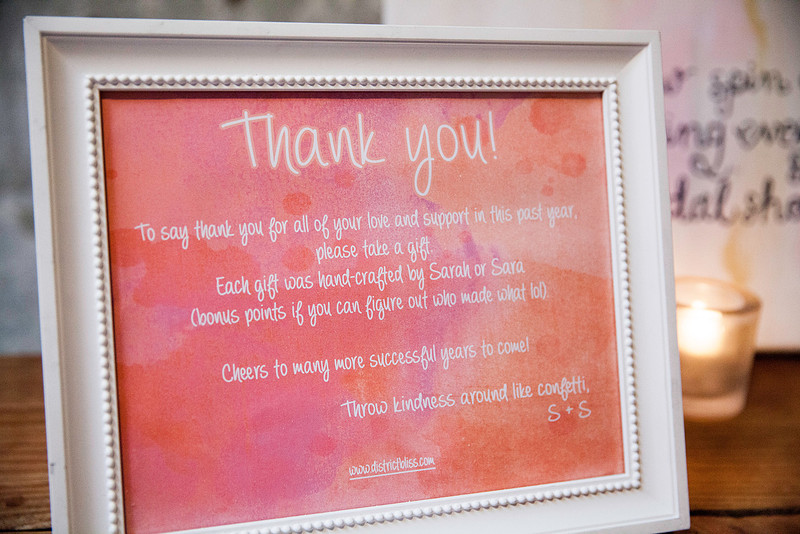 Thank you!
To say thank you for all of your love and support in this past year,
please take a gift.
Each gift was hand-crafted by Sarah or Sara
(bonus points if you can figure out who made what lol).
Cheers to many more successful years to come!
Throw kindness around like confetti,
S + S
www.districtbliss.com
spin